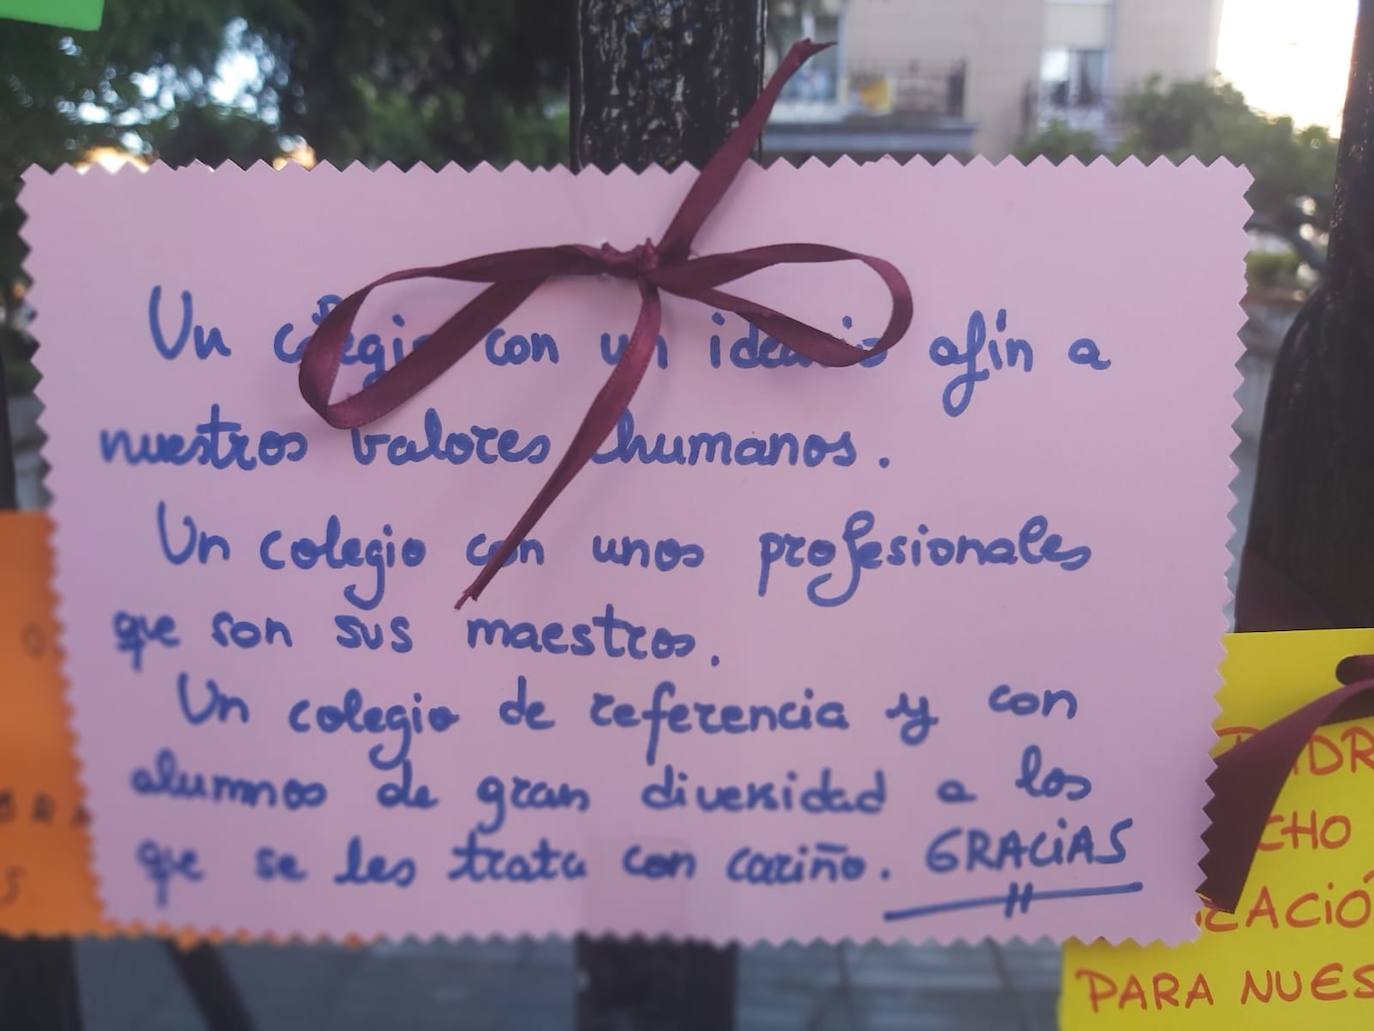 Un colegio con un ideario afín a
nuestros valores humanos.
Un colegio con unos profesionales
que son sus maestros.
Un colegio de referencia y con
alumnos de gran diversidad a los
que se les trata con cariño. GRACiAS
PARA NUES